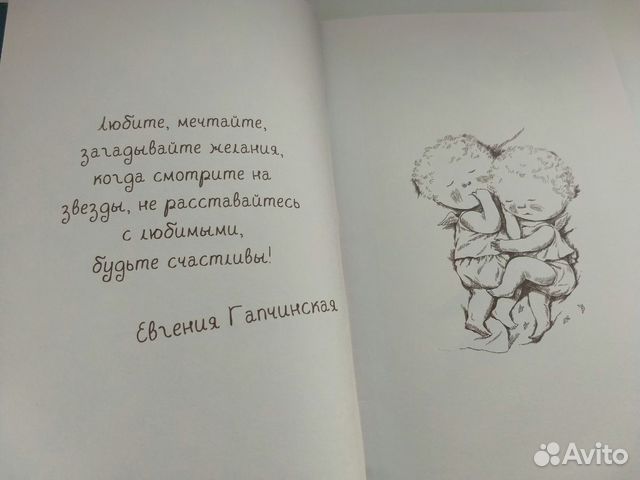 Любите, мечтайте,
загадывайте желания,
когда смотрите на
звезды, не расставайтесь
с любимыми,
будьте счастливы!
Евгения Гапчинская
Avito